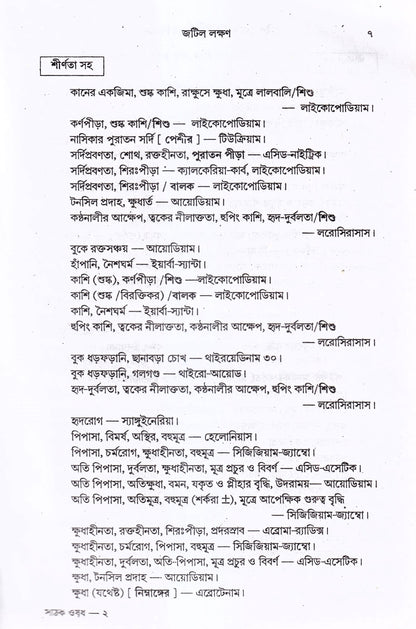 জটিল লক্ষণ ৭
শীর্ণতা সহ
কানের একজিমা, শুষ্ক কাশি, রাক্ষুসে ক্ষুধা, মূত্রে লালবালি/শিশু
— লাইকোপোডিয়াম।
কর্ণপীড়া, শুষ্ক কাশি/শিশু — লাইকোপোডিয়াম।
নাসিকার পুরাতন সর্দি [ পেশীর ] — টিউক্রিয়াম।
সর্দিপ্রবণতা, শোথ, রক্তহীনতা, পুরাতন পীড়া — এসিড-নাইট্রিক।
সর্দিপ্রবণতা, শিরঃপীড়া — ক্যালকেরিয়া-কার্ব, লাইকোপোডিয়াম।
সর্দিপ্রবণতা, শিরঃপীড়া / বালক — লাইকোপোডিয়াম।
টনসিল প্রদাহ, ক্ষুধার্ত — আয়োডিয়াম।
কণ্ঠনালীর আক্ষেপ, ত্বকের নীলাক্ততা, হুপিং কাশি, হৃদ-দুর্বলতা/শিশু
— লরোসিরাসাস।
বুকে রক্তসঞ্চয় — আয়োডিয়াম।
হাঁপানি, নৈশঘর্ম — ইয়ার্বা-স্যান্টা।
কাশি (শুষ্ক), কর্ণপীড়া /শিশু —লাইকোপোডিয়াম।
কাশি (শুষ্ক /বিরক্তিকর) /বালক — লাইকোপোডিয়াম।
কাশি, নৈশঘর্ম — ইয়ার্বা-স্যান্টা।
হুপিং কাশি, ত্বকের নীলাক্ততা, কণ্ঠনালীর আক্ষেপ, হৃদ-দুর্বলতা/শিশু
— লরোসিরাসাস।
বুক ধড়ফড়ানি, ছানাবড়া চোখ — থাইরয়েডিনাম ৩০।
বুক ধড়ফড়ানি, গলগণ্ড — থাইরো-আয়োড।
হৃদ-দুর্বলতা, ত্বকের নীলাক্ততা, কণ্ঠনালীর আক্ষেপ, হুপিং কাশি/শিশু
— লরোসিরাসাস।
হৃদরোগ — স্যাঙ্গুইনেরিয়া।
পিপাসা, বিমর্ষ, অস্থির, বহুমূত্র — হেলোনিয়াস।
পিপাসা, চর্মরোগ, ক্ষুধাহীনতা, বহুমূত্র — সিজিজিয়াম-জ্যাম্বো।
অতি পিপাসা, দুর্বলতা, ক্ষুধাহীনতা, মূত্র প্রচুর ও বিবর্ণ — এসিড-এসেটিক।
অতি পিপাসা, অতিক্ষুধা, বমন, যকৃত ও প্লীহার বৃদ্ধি, উদরাময়— আয়োডিয়াম।
অতি পিপাসা, অতিমূত্র, বহুমূত্র (শর্করা ±), মূত্রে আপেক্ষিক গুরুত্ব বৃদ্ধি
— সিজিজিয়াম-জ্যাম্বো।
ক্ষুধাহীনতা, রক্তহীনতা, শিরঃপীড়া, প্রদরস্রাব — এব্রোমা-র‍্যাডিক্স।
ক্ষুধাহীনতা, চর্মরোগ, পিপাসা, বহুমূত্র — সিজিজিয়াম-জ্যাম্বো।
ক্ষুধাহীনতা, দুর্বলতা, অতি-পিপাসা, মূত্র প্রচুর ও বিবর্ণ — এসিড-এসেটিক।
ক্ষুধা, টনসিল প্রদাহ — আয়োডিয়াম।
ক্ষুধা (যথেষ্ট) [ নিম্নাঙ্গের ] — এব্রোটেনাম।
সঠিক ওষুধ — ২